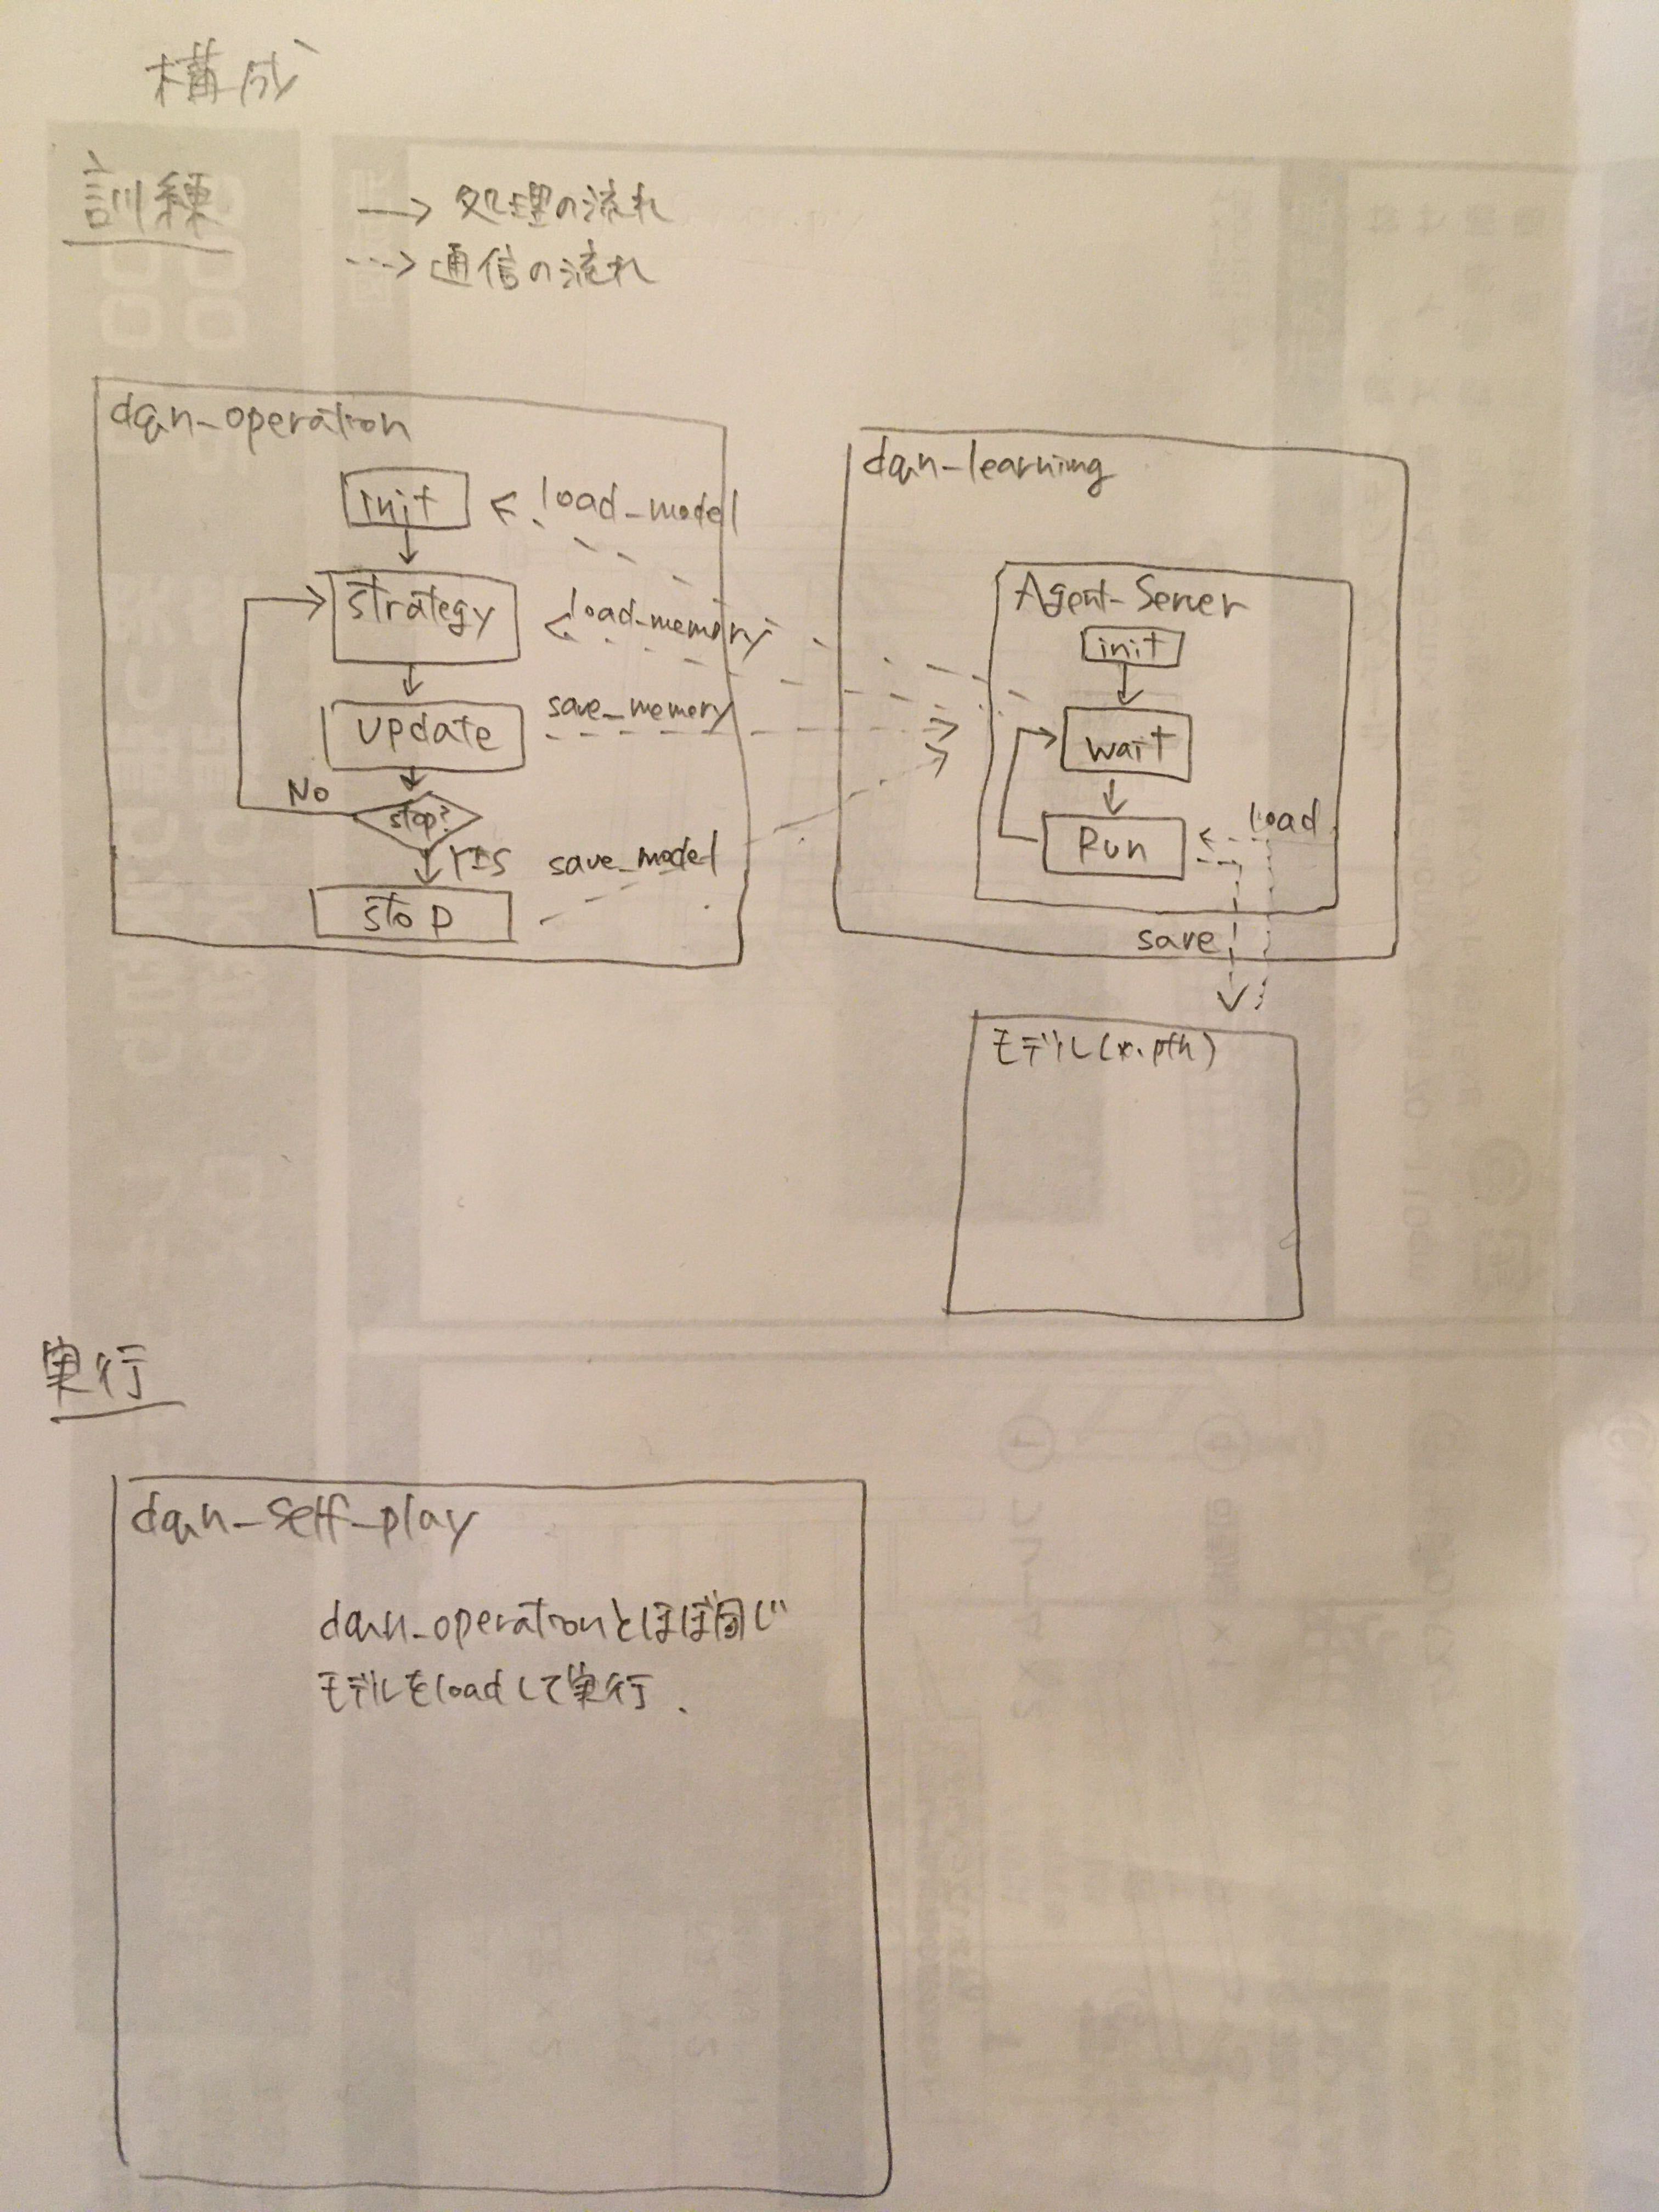 構成
訓練
→ 処理の流れ
⇢ 通信の流れ
dqn_operation
init
load_model
strategy
load_memory
update
save_memory
No
stop?
YES
save_model
stop
dqn-learning
Agent-Server
init
wait
Run
load
save
モデル(*.pth)
実行
dqn_self_play
dqn_operationとほぼ同じ
モデルをloadして実行.